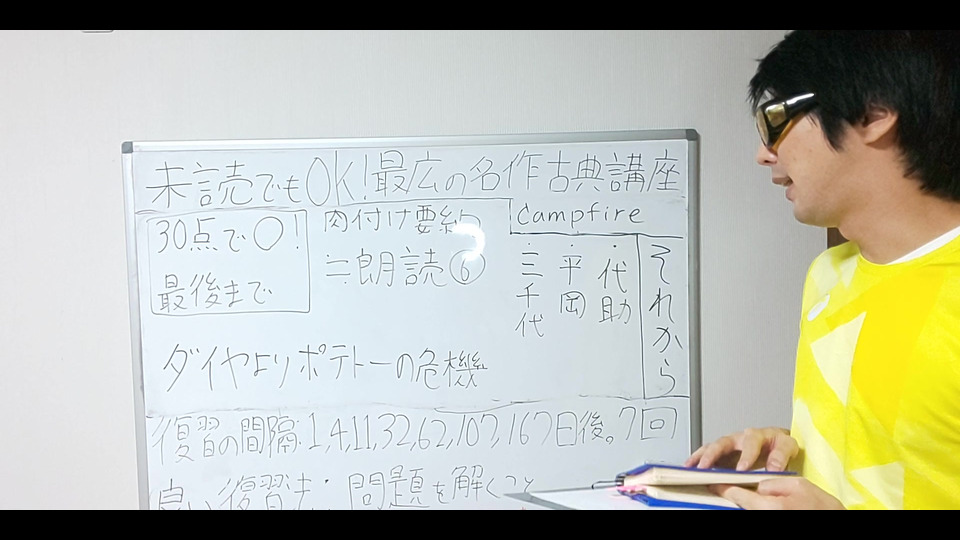 未読でもOK!最広の名作古典講座
30点で〇!
最後まで
肉付け要約
≒朗読⑥
Campfire
それから
・代助
・平岡
・三千代
ダイヤよりポテトーの危機
復習の間隔:1,4,11,32,62,107,167日後。7回
良い復習法:問題を解くこと